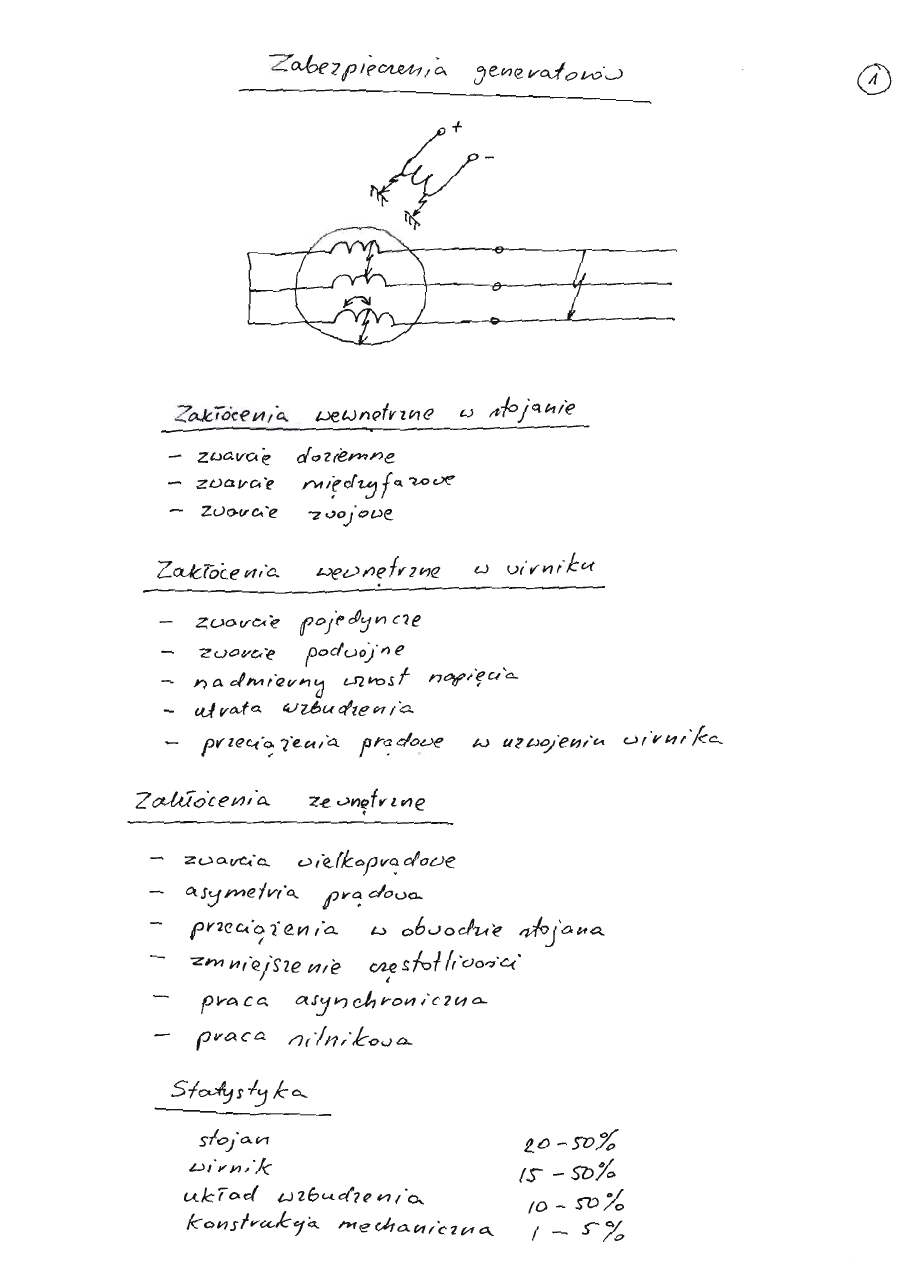 Zabezpieczenia generatorów
1
+
-
Zakłócenia wewnętrzne w stojanie
- zwarcie doziemne
- zwarcie międzyfazowe
- zwarcie zwojowe
Zakłócenia wewnętrzne w wirniku
- zwarcie pojedyncze
- zwarcie podwójne
- nadmierny wzrost napięcia
- utrata wzbudzenia
- przeciążenia prądowe w uzwojeniu wirnika
Zakłócenia zewnętrzne
- zwarcia wielkoprądowe
- asymetria prądowa
- przeciążenia w obwodzie stojana
- zmniejszenie częstotliwości
- praca asynchroniczna
- praca silnikowa
Statystyka
stojan 20-50%
wirnik 15-50%
układ wzbudzenia 10-50%
konstrukcja mechaniczna 1-5%